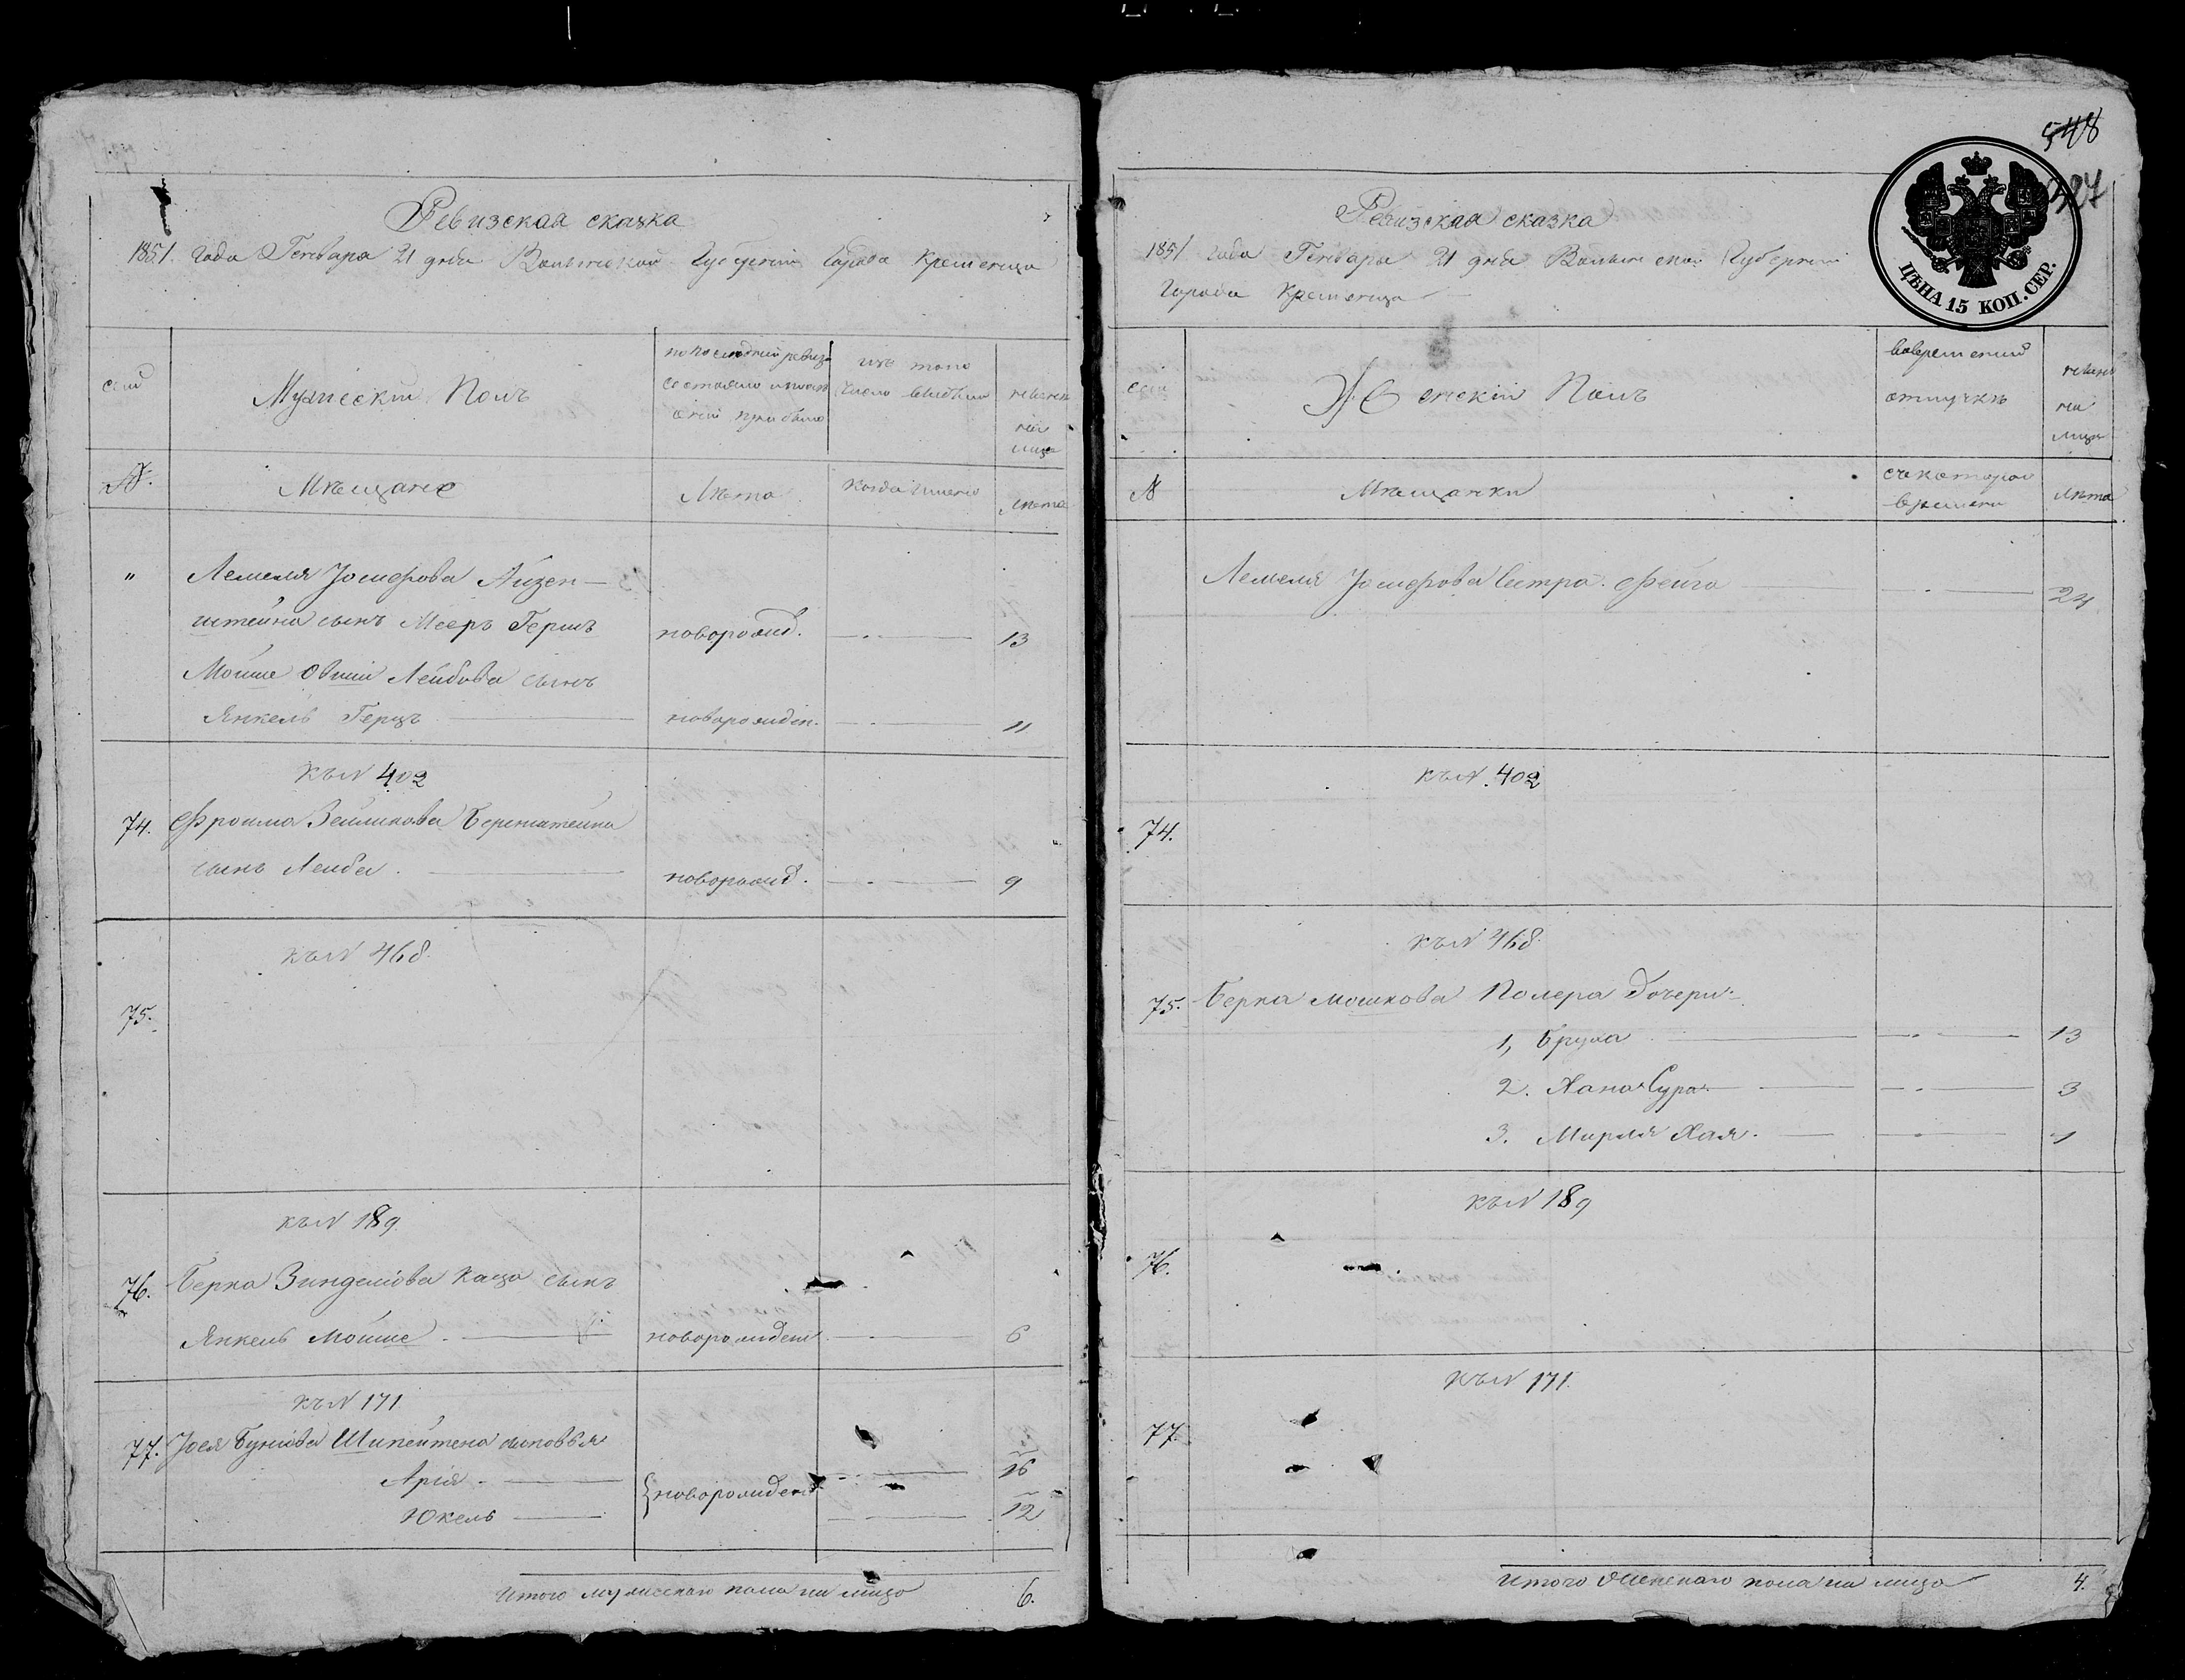 Ревизская сказка
1851. года Генваря 21 дня Волынской Губерніи Города Кременца
семій
Мужескій Полъ
по последней ревизіи
состояло и после
оной прибыло
изъ того
числа выбыло
ныне на
лицо
№.
Мѣщане
Лѣта
когда именно
лѣта
"
Лемеля Іосифова Айзен-
штейна сынъ Мееръ Гершъ
новорожд.
13
Мойше Овшій Лейбова сынъ
Янкель Герцъ
новорожден.
11
къ N 402
74. Фроима Зейликова Беренштейна
сынъ Лейба.
новорожд.
9
къ N 468.
75.
къ N 189.
76. Берка Зинделіова Каца сынъ
Янкель Мойше.
новорожден
6
къ N 171
77. Іося Буніова Шпейтена сыновья
Арія.
16
новорожден
Юкель
12
Итого мужескаго пола на лицо 6.
548
327
ЦѢНА 15 КОП. СЕР.
Ревизская сказка
1851 года Генваря 21 дня Волынской Губерніи
Города Кременца
семій
Женскій Полъ
во временной
отлучкѣ
ныне
на
лицо
№
Мѣщанки
съ котораго
времени
лѣта
Лемеля Іосифова Сестра Фейга
24
къ N. 402
74.
къ N 468.
75. Берка Мошкова Полера дочери:
1, Бруха
13
2. Хана Сура.
3
3. Мирля Хая.
1
къ N 189
76.
къ N 171.
77.
Итого Женскаго пола на лицо 4.